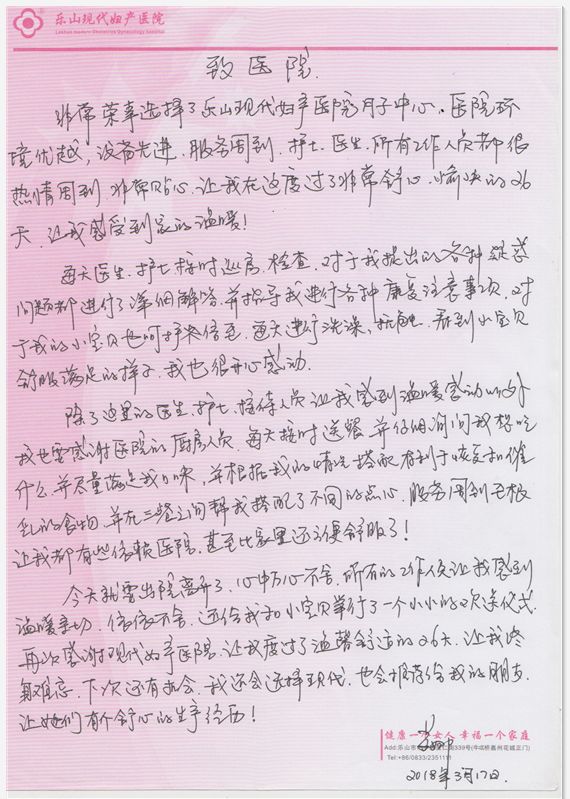 乐山现代妇产医院
Leshan modern Obstetrics Gynaecology hospital
致医院
非常荣幸选择了乐山现代妇产医院月子中心。医院环
境优越，设备先进，服务周到，护士、医生、所有工作人员都很
热情周到，非常贴心，让我在这度过了非常舒心、愉快的26
天，让我感受到家的温暖！
每天医生、护士按时巡房、检查，对于我提出的各种疑惑
问题都进行了详细解答，并指导我进行各种康复注意事项，对
于我的小宝贝也呵护倍至，每天进行洗澡、抚触，看到小宝贝
舒服满足的样子，我也很开心感动。
除了这里的医生、护士、接待人员让我感到温暖感动以外
我也要感谢医院的厨房人员，每天按时送餐，并仔细询问我想吃
什么，并尽量满足我口味，并根据我的情况搭配有利于恢复和催
乳的食物，并在三餐之间帮我搭配了不同的点心，服务周到
让我都有些依赖医院，甚至比家里还方便舒服了！
今天就要出院离开了，心中万心不舍，所有的工作人员让我感到
温暖亲切，依依不舍，还给我和小宝贝举行了一个小小的欢送仪式，
再次感谢现代妇产医院，让我度过了温馨舒适的26天，让我终
身难忘，下次还有机会，我还会选择现代，也会推荐给我的朋友，
让她们有个舒心的生产经历！
健康一个女人 幸福一个家庭
Add:乐山市339号(牛咡桥嘉州花城正门)
Tel:+86/0833/2351111
2018年3月17日.